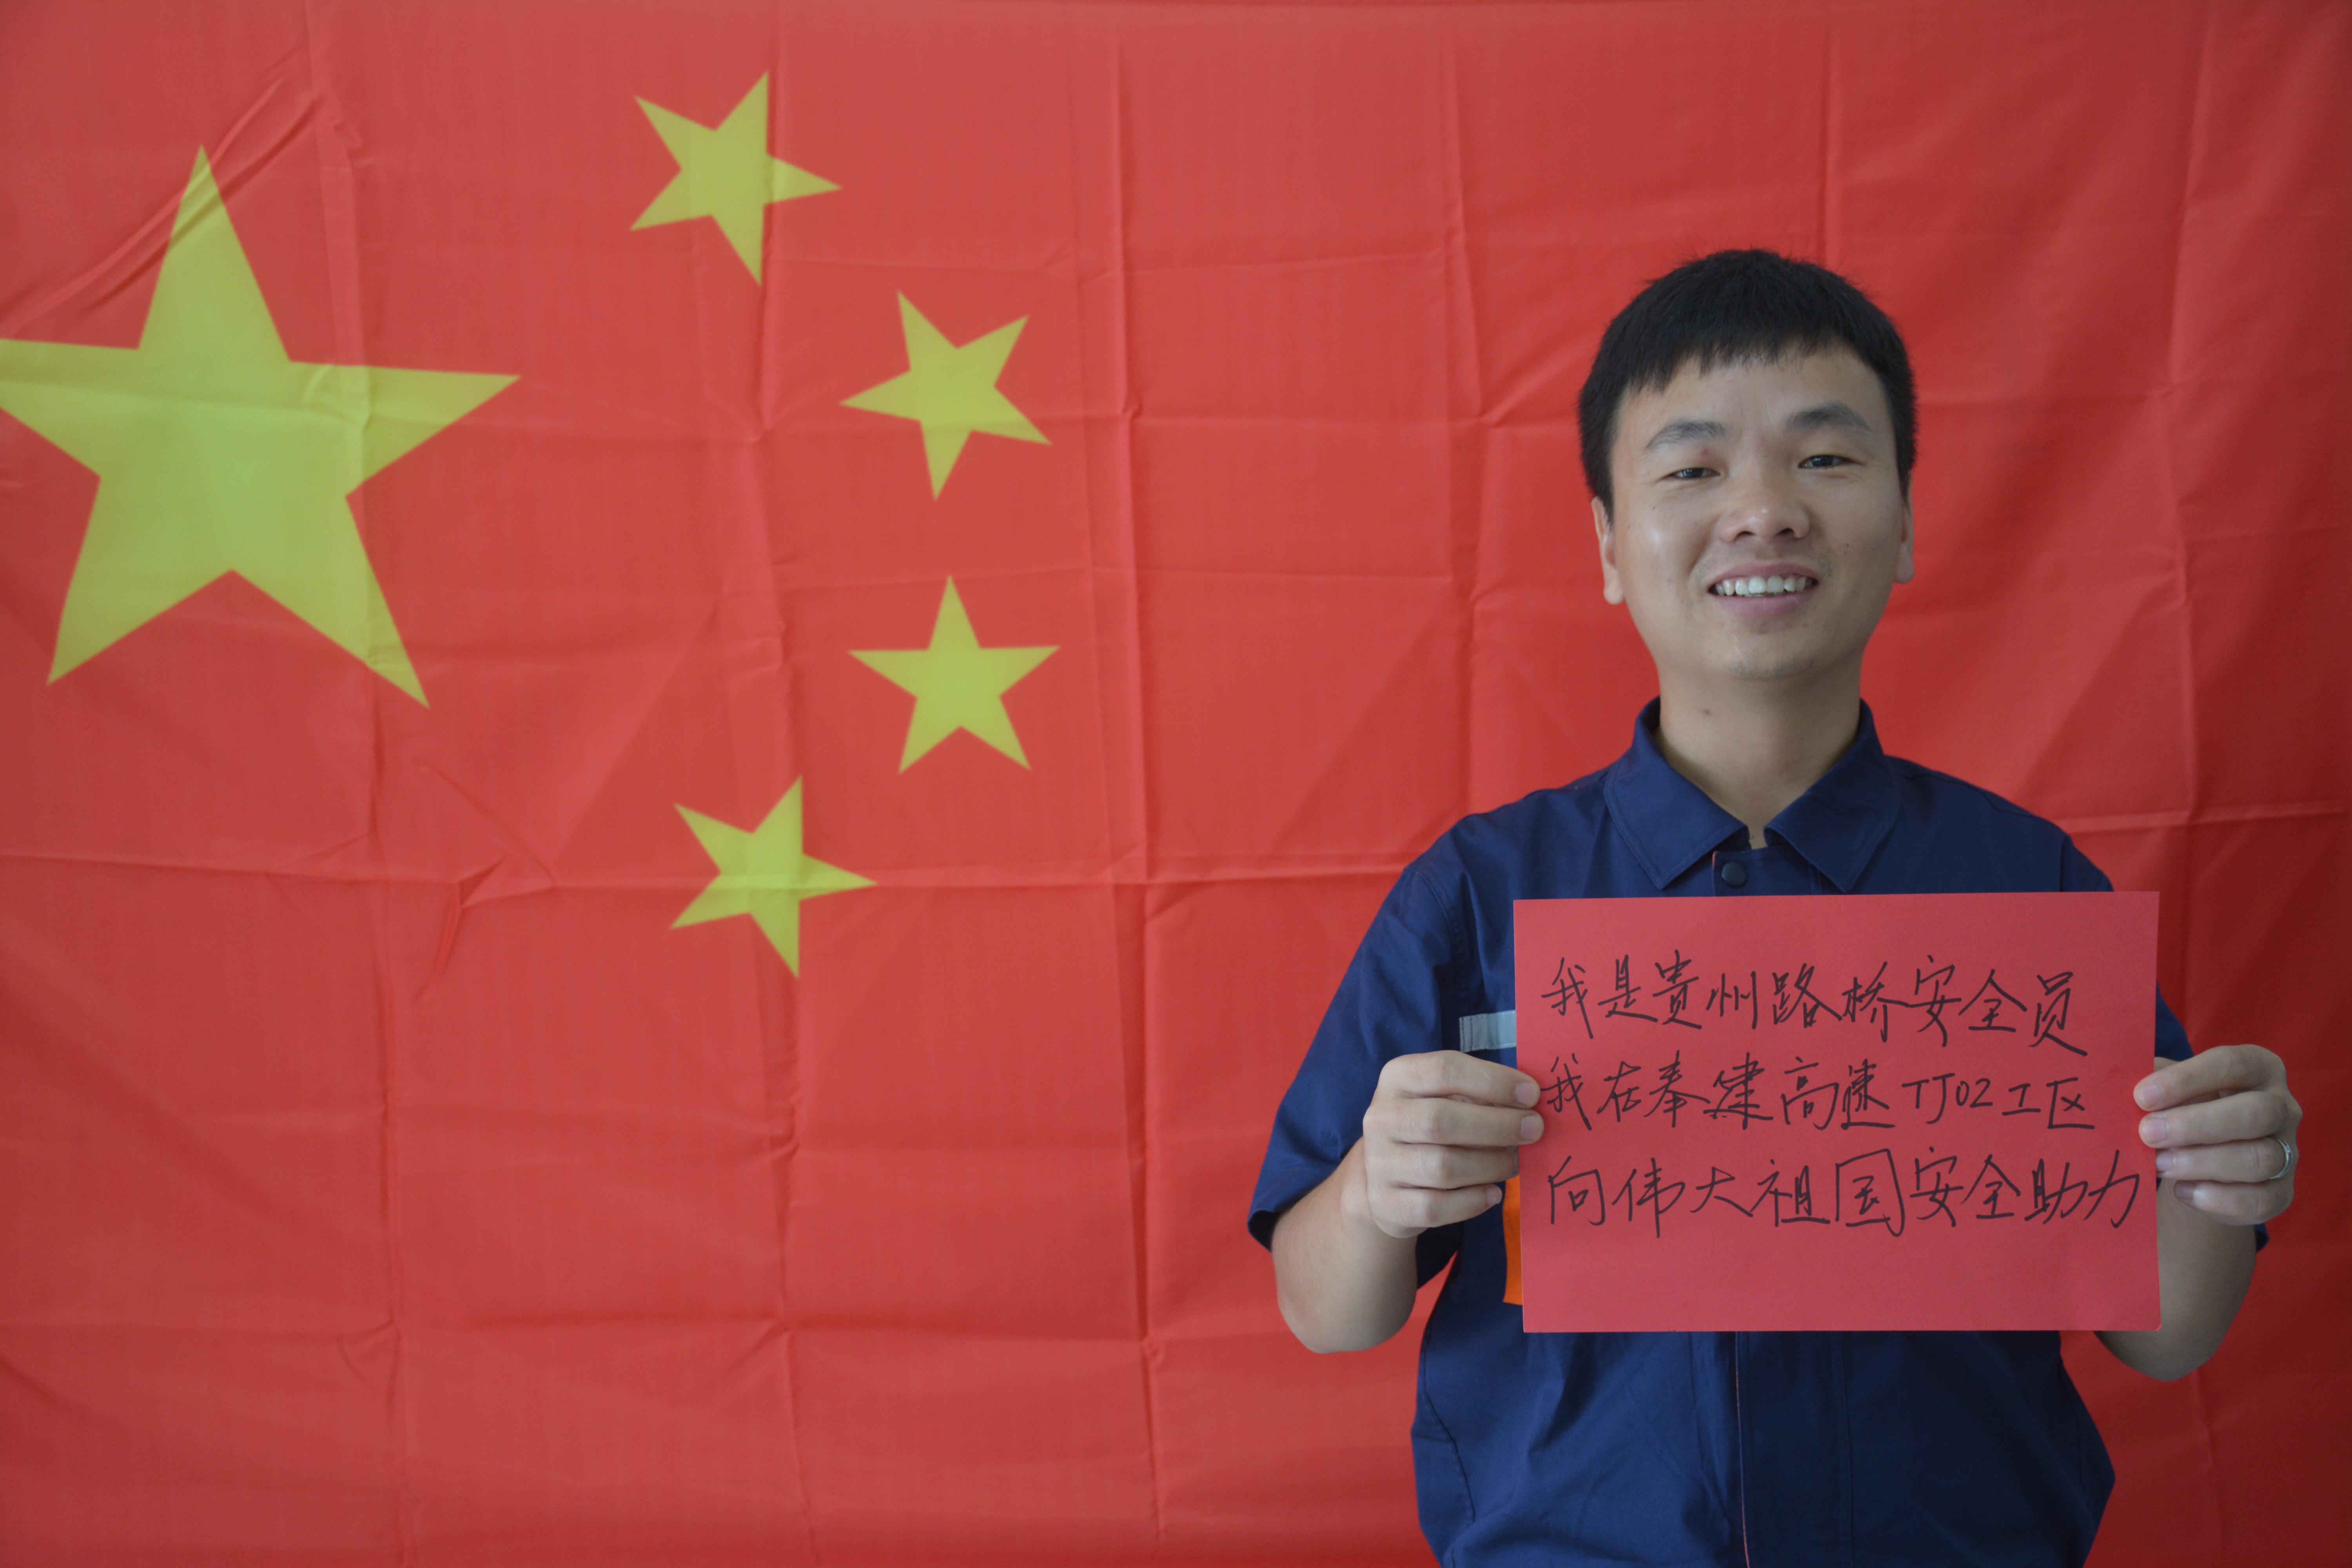 我是贵州路桥安全员
我在奉建高速TJ02工区
向伟大祖国安全助力